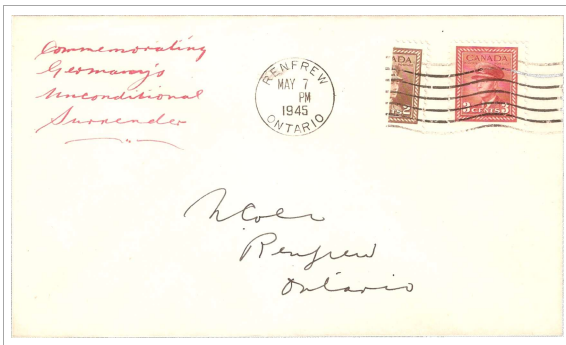 Commemorating
Germany's
Unconditional
Surrender
RENFREW
MAY 7
PM
1945
ONTARIO
ADA
2
CANADA
3 CENTS 3
Renfrew
Ontario